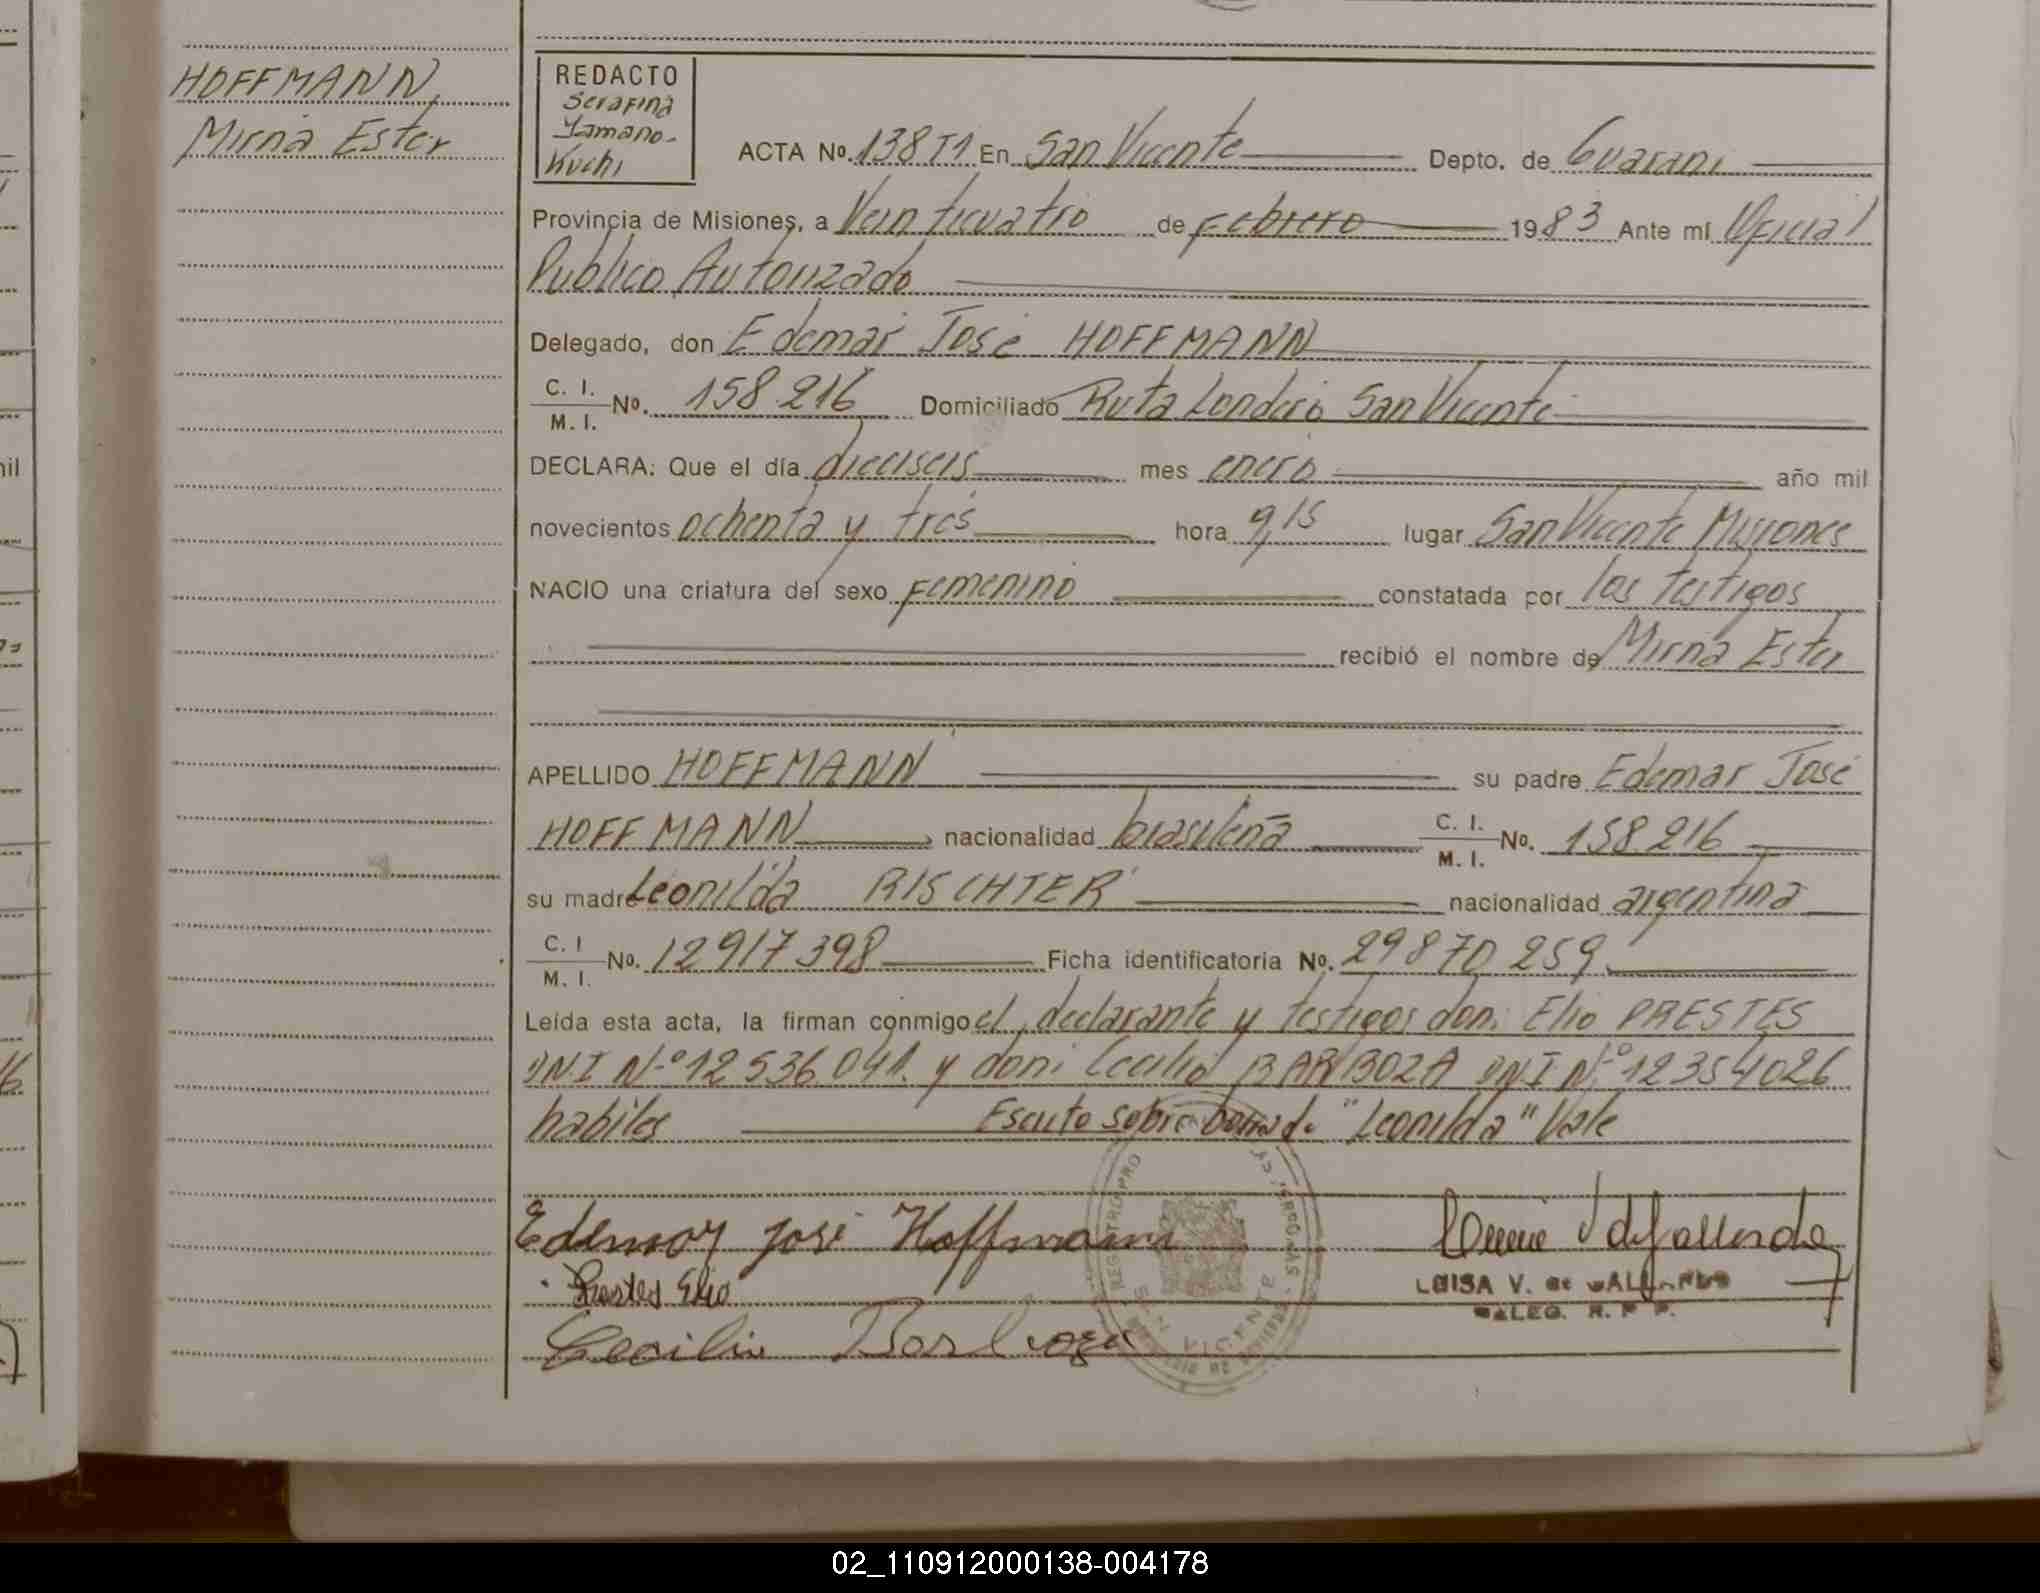 HOFFMANN,
Mirna Ester
REDACTO
Serafina
Yamano-
Kuchi
ACTA No. 138 T1 En San Vicente Depto. de Guarani
Provincia de Misiones, a Veinticuatro de Febrero 1983 Ante mí Oficial
Publico Autorizado
Delegado, don Edemar José HOFFMANN
C. I.
M. I. No. 158.216 Domiciliado Ruta Londero San Vicente
DECLARA: Que el día dieciseis mes enero año mil
novecientos ochenta y tres hora 9,15 lugar San Vicente Misiones
NACIO una criatura del sexo Femenino constatada por los testigos
recibió el nombre de Mirna Ester
APELLIDO HOFFMANN su padre Edemar José
HOFFMANN nacionalidad brasileña C. I.
M. I. No. 158.216
su madre Leonilda RISCHTER nacionalidad argentina
C. I
M. I. No. 12917398 Ficha identificatoria No. 29870259
Leída esta acta, la firman conmigo el declarante y testigos don: Elio PRESTES
DNI N.º 12536041. y don: Cecilio BARBOZA DNI N.º 12354026
habiles Escrito sobre borrado "Leonilda" Vale
Edemar José Hoffmann
Prestes Elio
LUISA V. de GALLARDO
DELEG. R. P. P.
Cecilio Barboza
REGISTRO PRO
SAN VICENTE
02_110912000138-004178